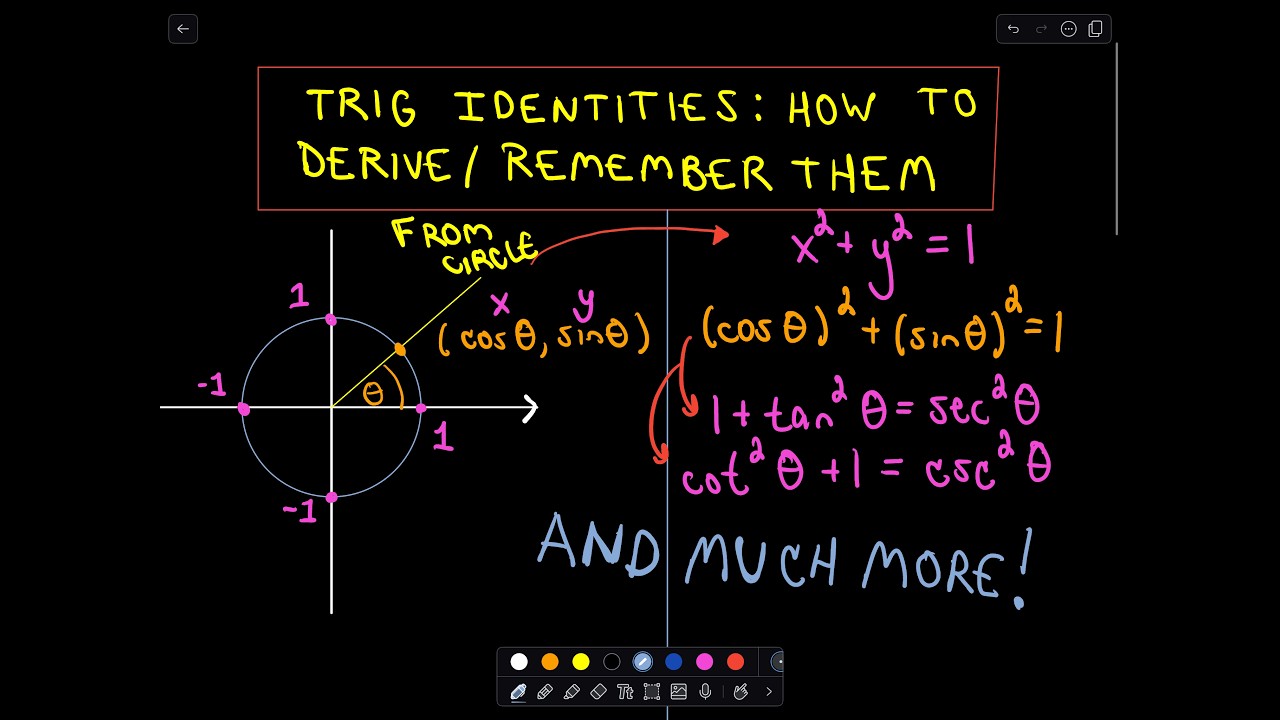 TRIG IDENTITIES: HOW TO
DERIVE/ REMEMBER THEM
FROM
CIRCLE
x y
(cosθ, sinθ)
1
-1
θ
1
-1
x² + y² = 1
(cosθ)² + (sinθ)² = 1
1 + tan² θ = sec² θ
cot² θ + 1 = csc² θ
AND MUCH MORE!
Tt